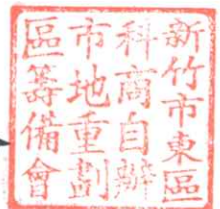 新竹市東區
科商自辦
市地重劃
區籌備會